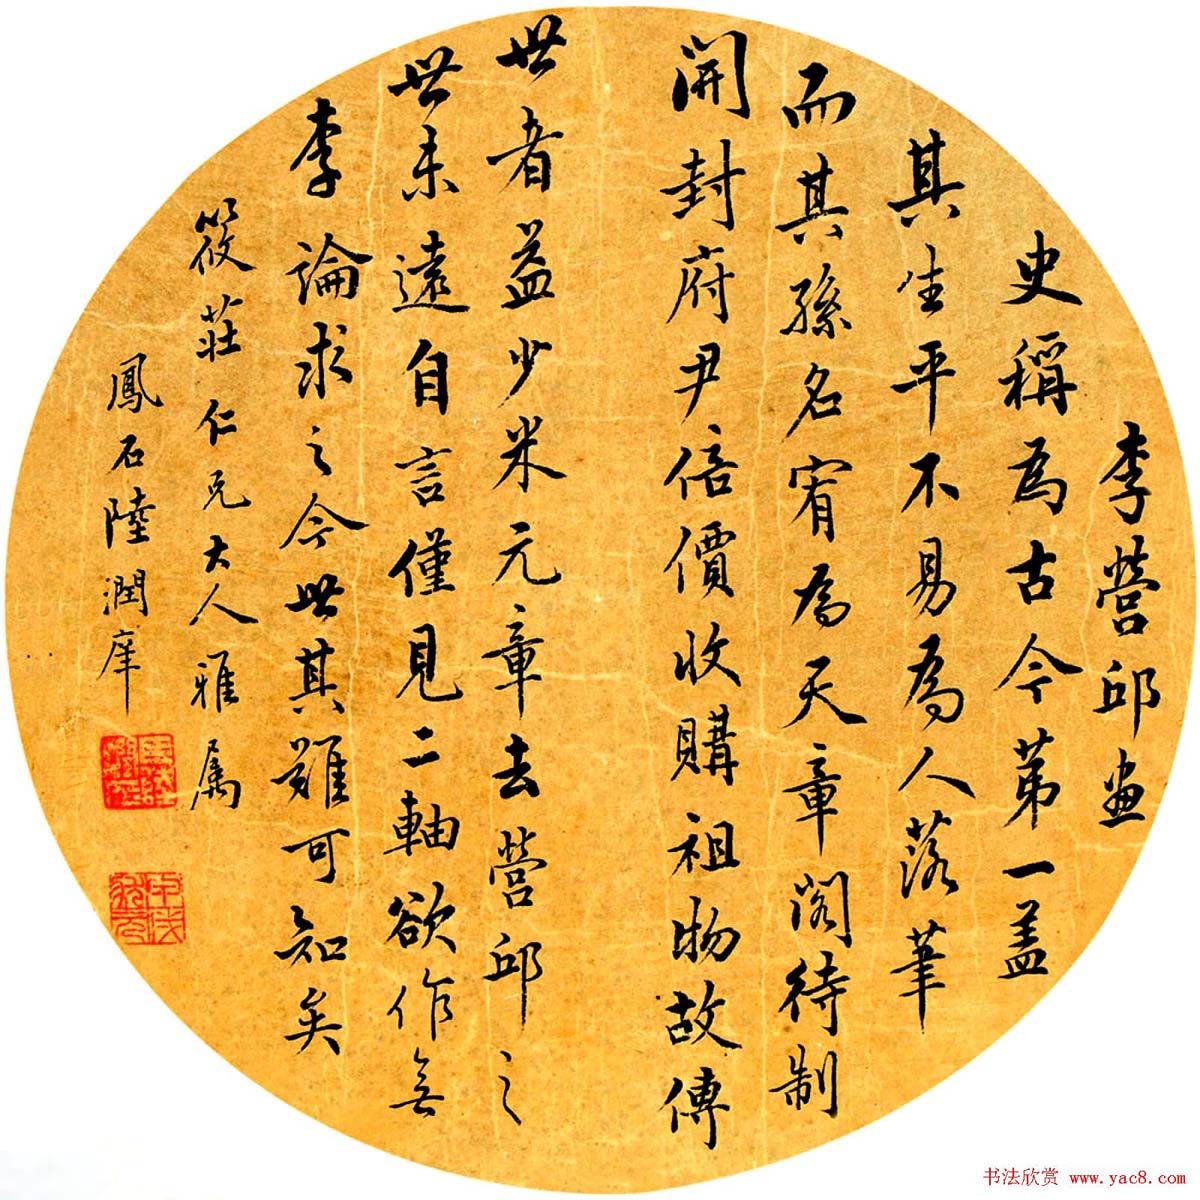 李營邱畫
史稱為古今第一蓋
其生平不易為人落筆
而其孫名宥為天章閣待制
開封府尹倍價收購祖物故傳
世者益少米元章去營邱之
世未遠自言僅見二軸欲作無
李論求之今世其難可知矣
筱莊仁兄大人雅属
鳳石陸潤庠
甲戌
狀元
书法欣赏 www.yac8.com